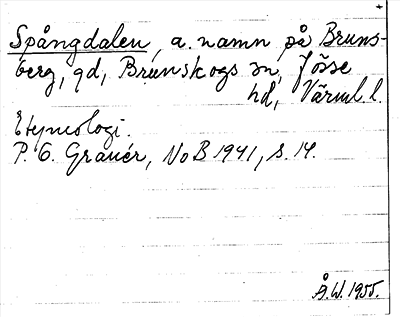 Spångdalen, a. namn på Bruns-
berg, gd, Brunskogs sn, Jösse
hd, Värml. l.
Etymologi.
P. G. Granér, NoB 1941, s. 14.
Å.W. 1955.